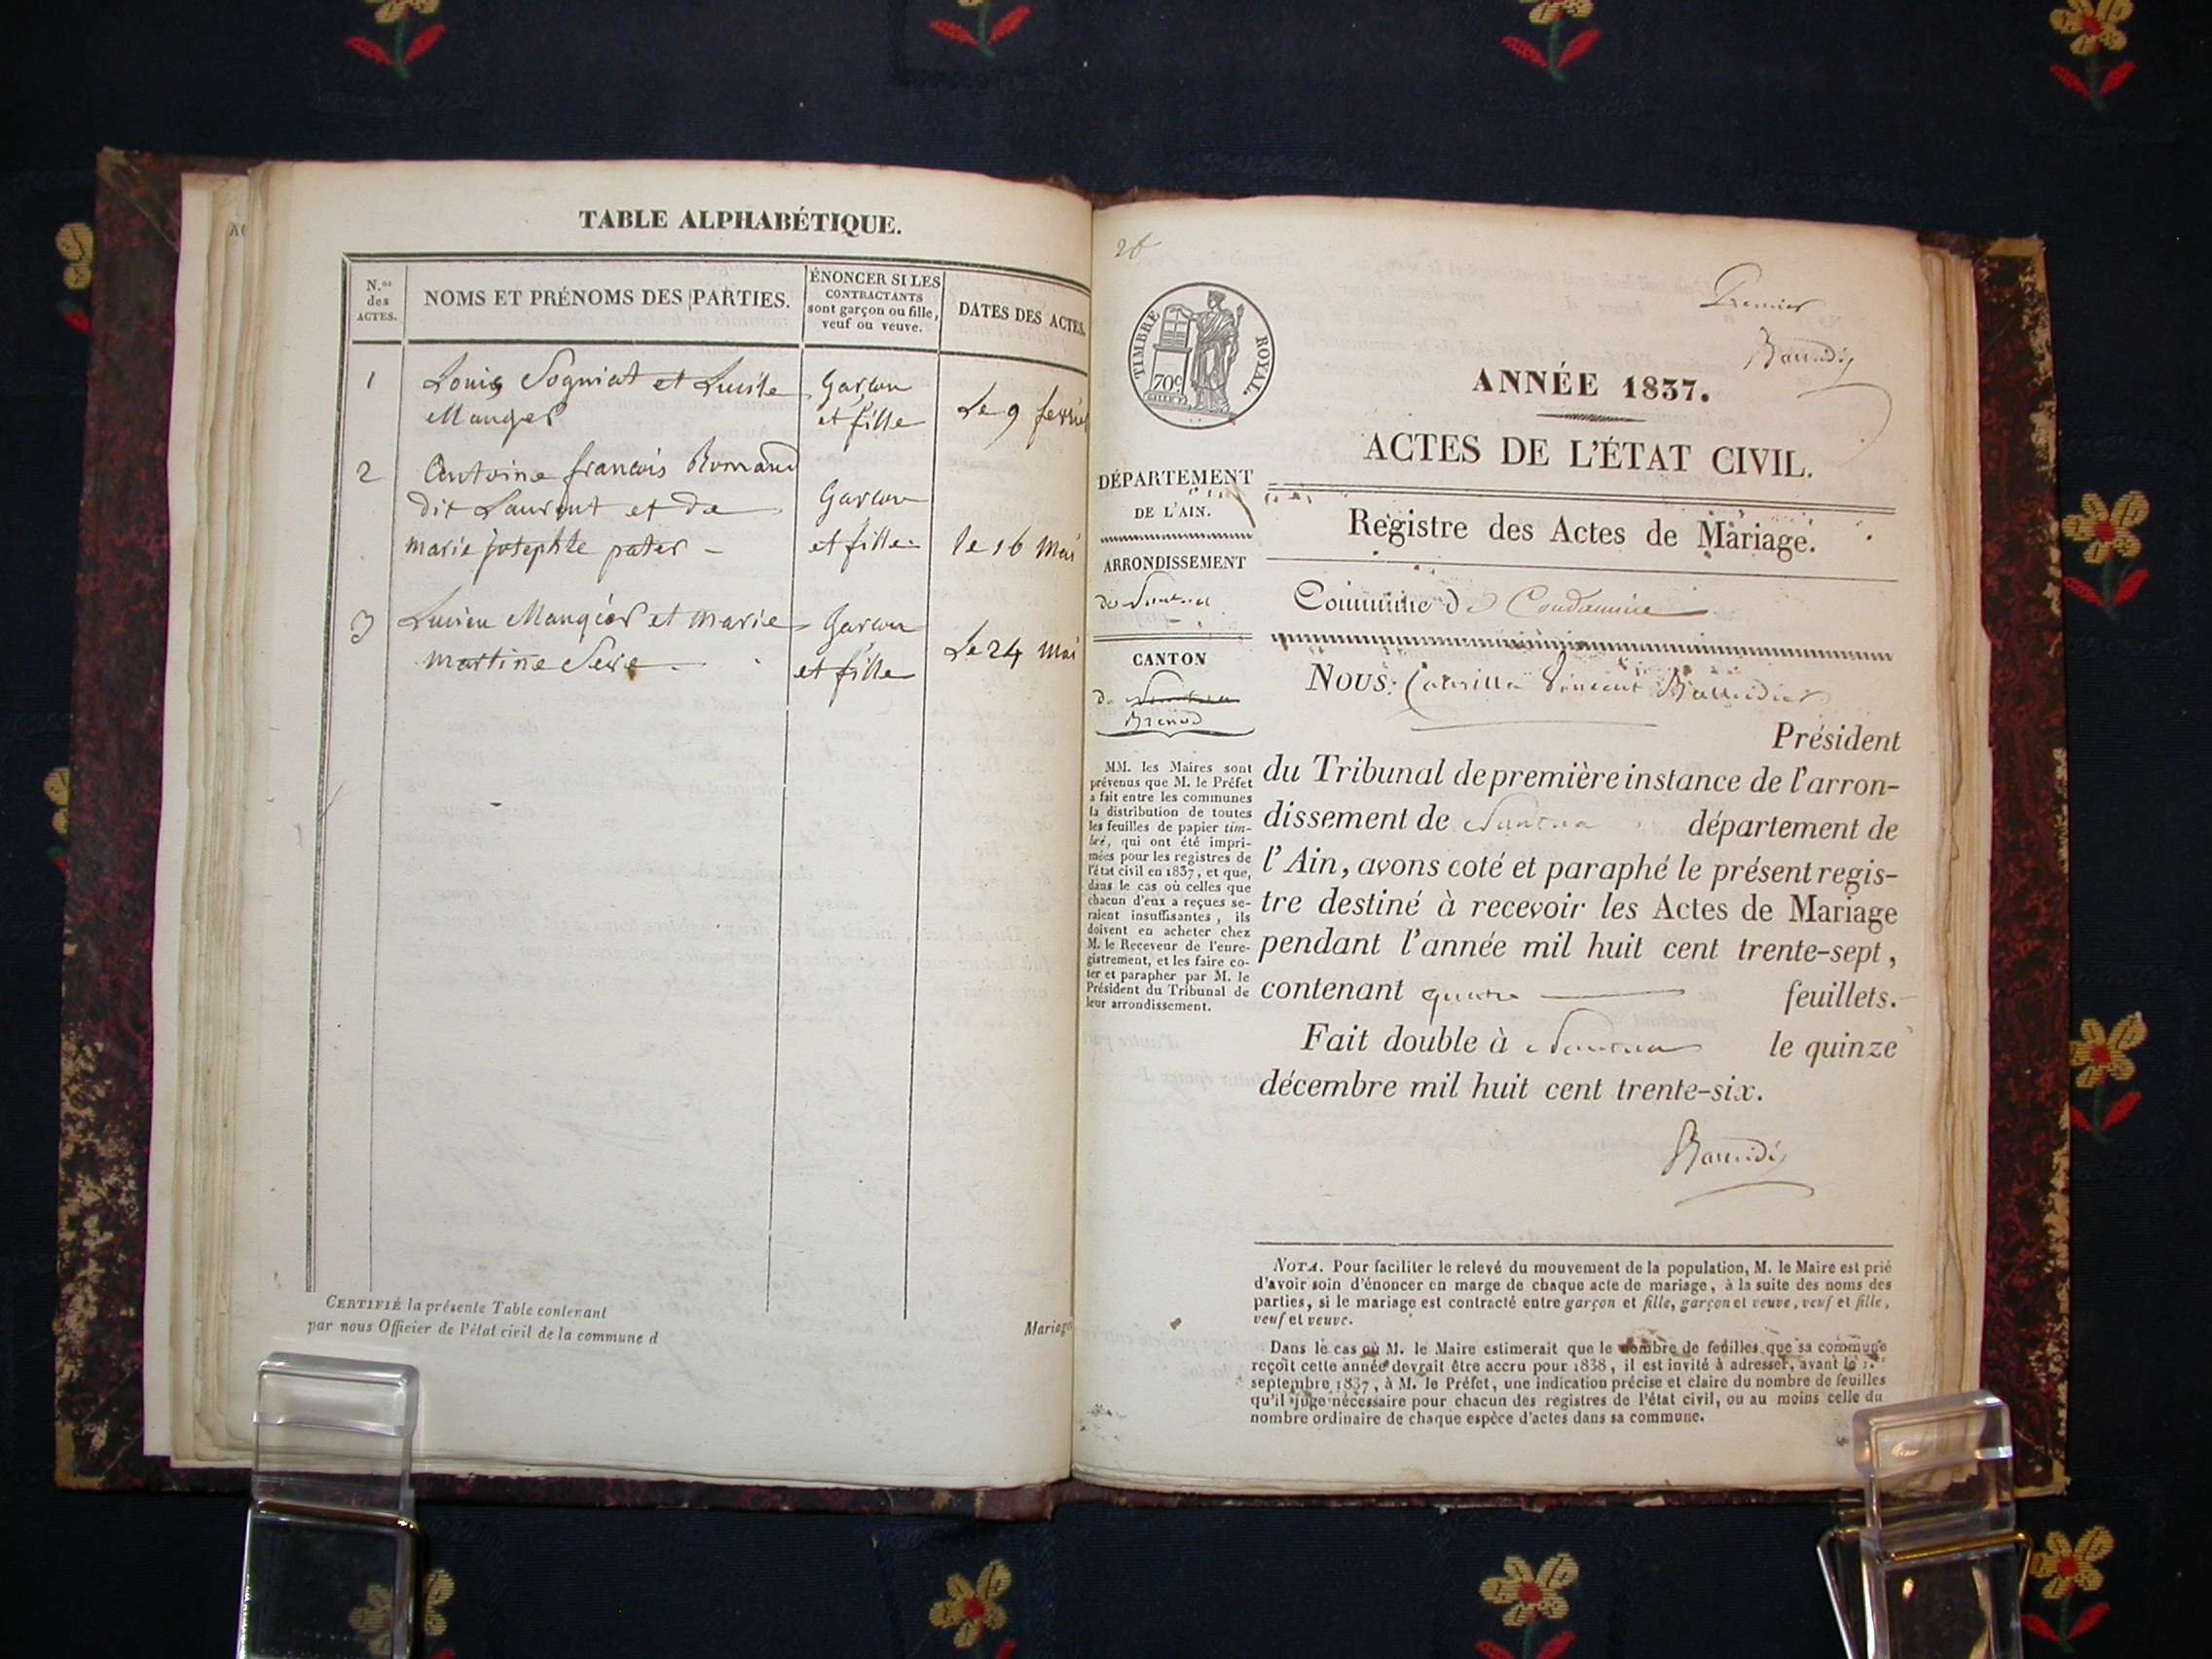 TABLE ALPHABÉTIQUE.
N.os des ACTES.
NOMS ET PRÉNOMS DES PARTIES.
ÉNONCER SI LES
CONTRACTANTS
sont garçon ou fille,
veuf ou veuve.
DATES DES ACTES.
1 Louis Sogniat et Lucile Garçon
Manger et fille Le 9 fevrier
2 Antoine francois Romand
dit Laurent et de Garcon
marie josephte pater - et fille le 16 Mai
3 Lucien Mangier et marie Garcon
martine et fille Le 24 Mai
CERTIFIÉ la présente Table contenant
Mariages
par nous Officier de l'état civil de la commune d
26
Premier
TIMBRE ROYAL.
70c
ANNÉE 1837.
ACTES DE L'ÉTAT CIVIL.
DÉPARTEMENT
DE L'AIN.
ARRONDISSEMENT
de Nantua
CANTON
de Nantua
Brénod
MM. les Maires sont
prévenus que M. le Préfet
a fait entre les communes
la distribution de toutes
les feuilles de papier tim-
bré, qui ont été impri-
mées pour les registres de
l'état civil en 1837, et que,
dans le cas où celles que
chacun d'eux a reçues se-
raient insuffisantes, ils
doivent en acheter chez
M. le Receveur de l'enre-
gistrement, et les faire co-
ter et parapher par M. le
Président du Tribunal de
leur arrondissement.
Registre des Actes de Mariage.
Commune de Condamine
NOUS, Vincent
Président
du Tribunal de première instance de l'arron-
dissement de Nantua département de
l'Ain, avons coté et paraphé le présent regis-
tre destiné à recevoir les Actes de Mariage
pendant l'année mil huit cent trente-sept,
contenant quatre feuillets.
Fait double à Nantua le quinze
décembre mil huit cent trente-six.
NOTA. Pour faciliter le relevé du mouvement de la population, M. le Maire est prié
d'avoir soin d'énoncer en marge de chaque acte de mariage, à la suite des noms des
parties, si le mariage est contracté entre garçon et fille, garçon et veuve, veuf et fille,
veuf et veuve.
Dans le cas où M. le Maire estimerait que le nombre de feuilles que sa commune
reçoit cette année devrait être accru pour 1838, il est invité à adresser, avant le 1.er
septembre 1837, à M. le Préfet, une indication précise et claire du nombre de feuilles
qu'il juge nécessaire pour chacun des registres de l'état civil, ou au moins celle du
nombre ordinaire de chaque espèce d'actes dans sa commune.